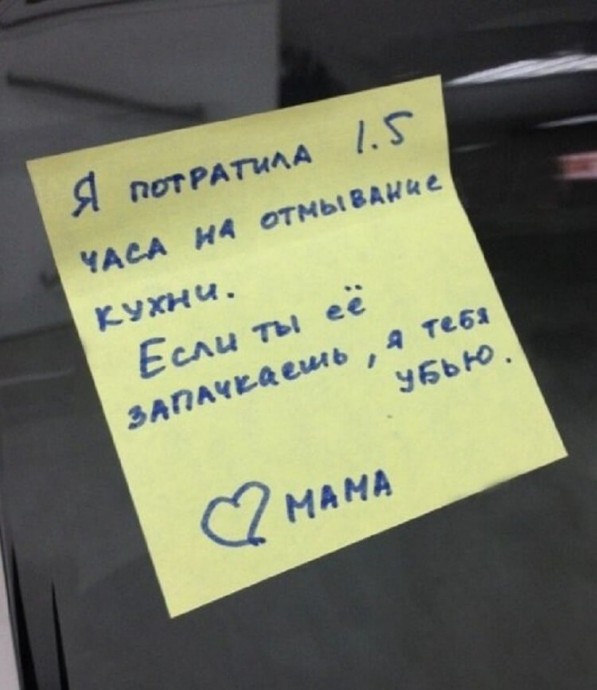 Я потратила 1.5
часа на отмывание
кухни.
Если ты её
запачкаешь, я тебя
убью.
♡ мама